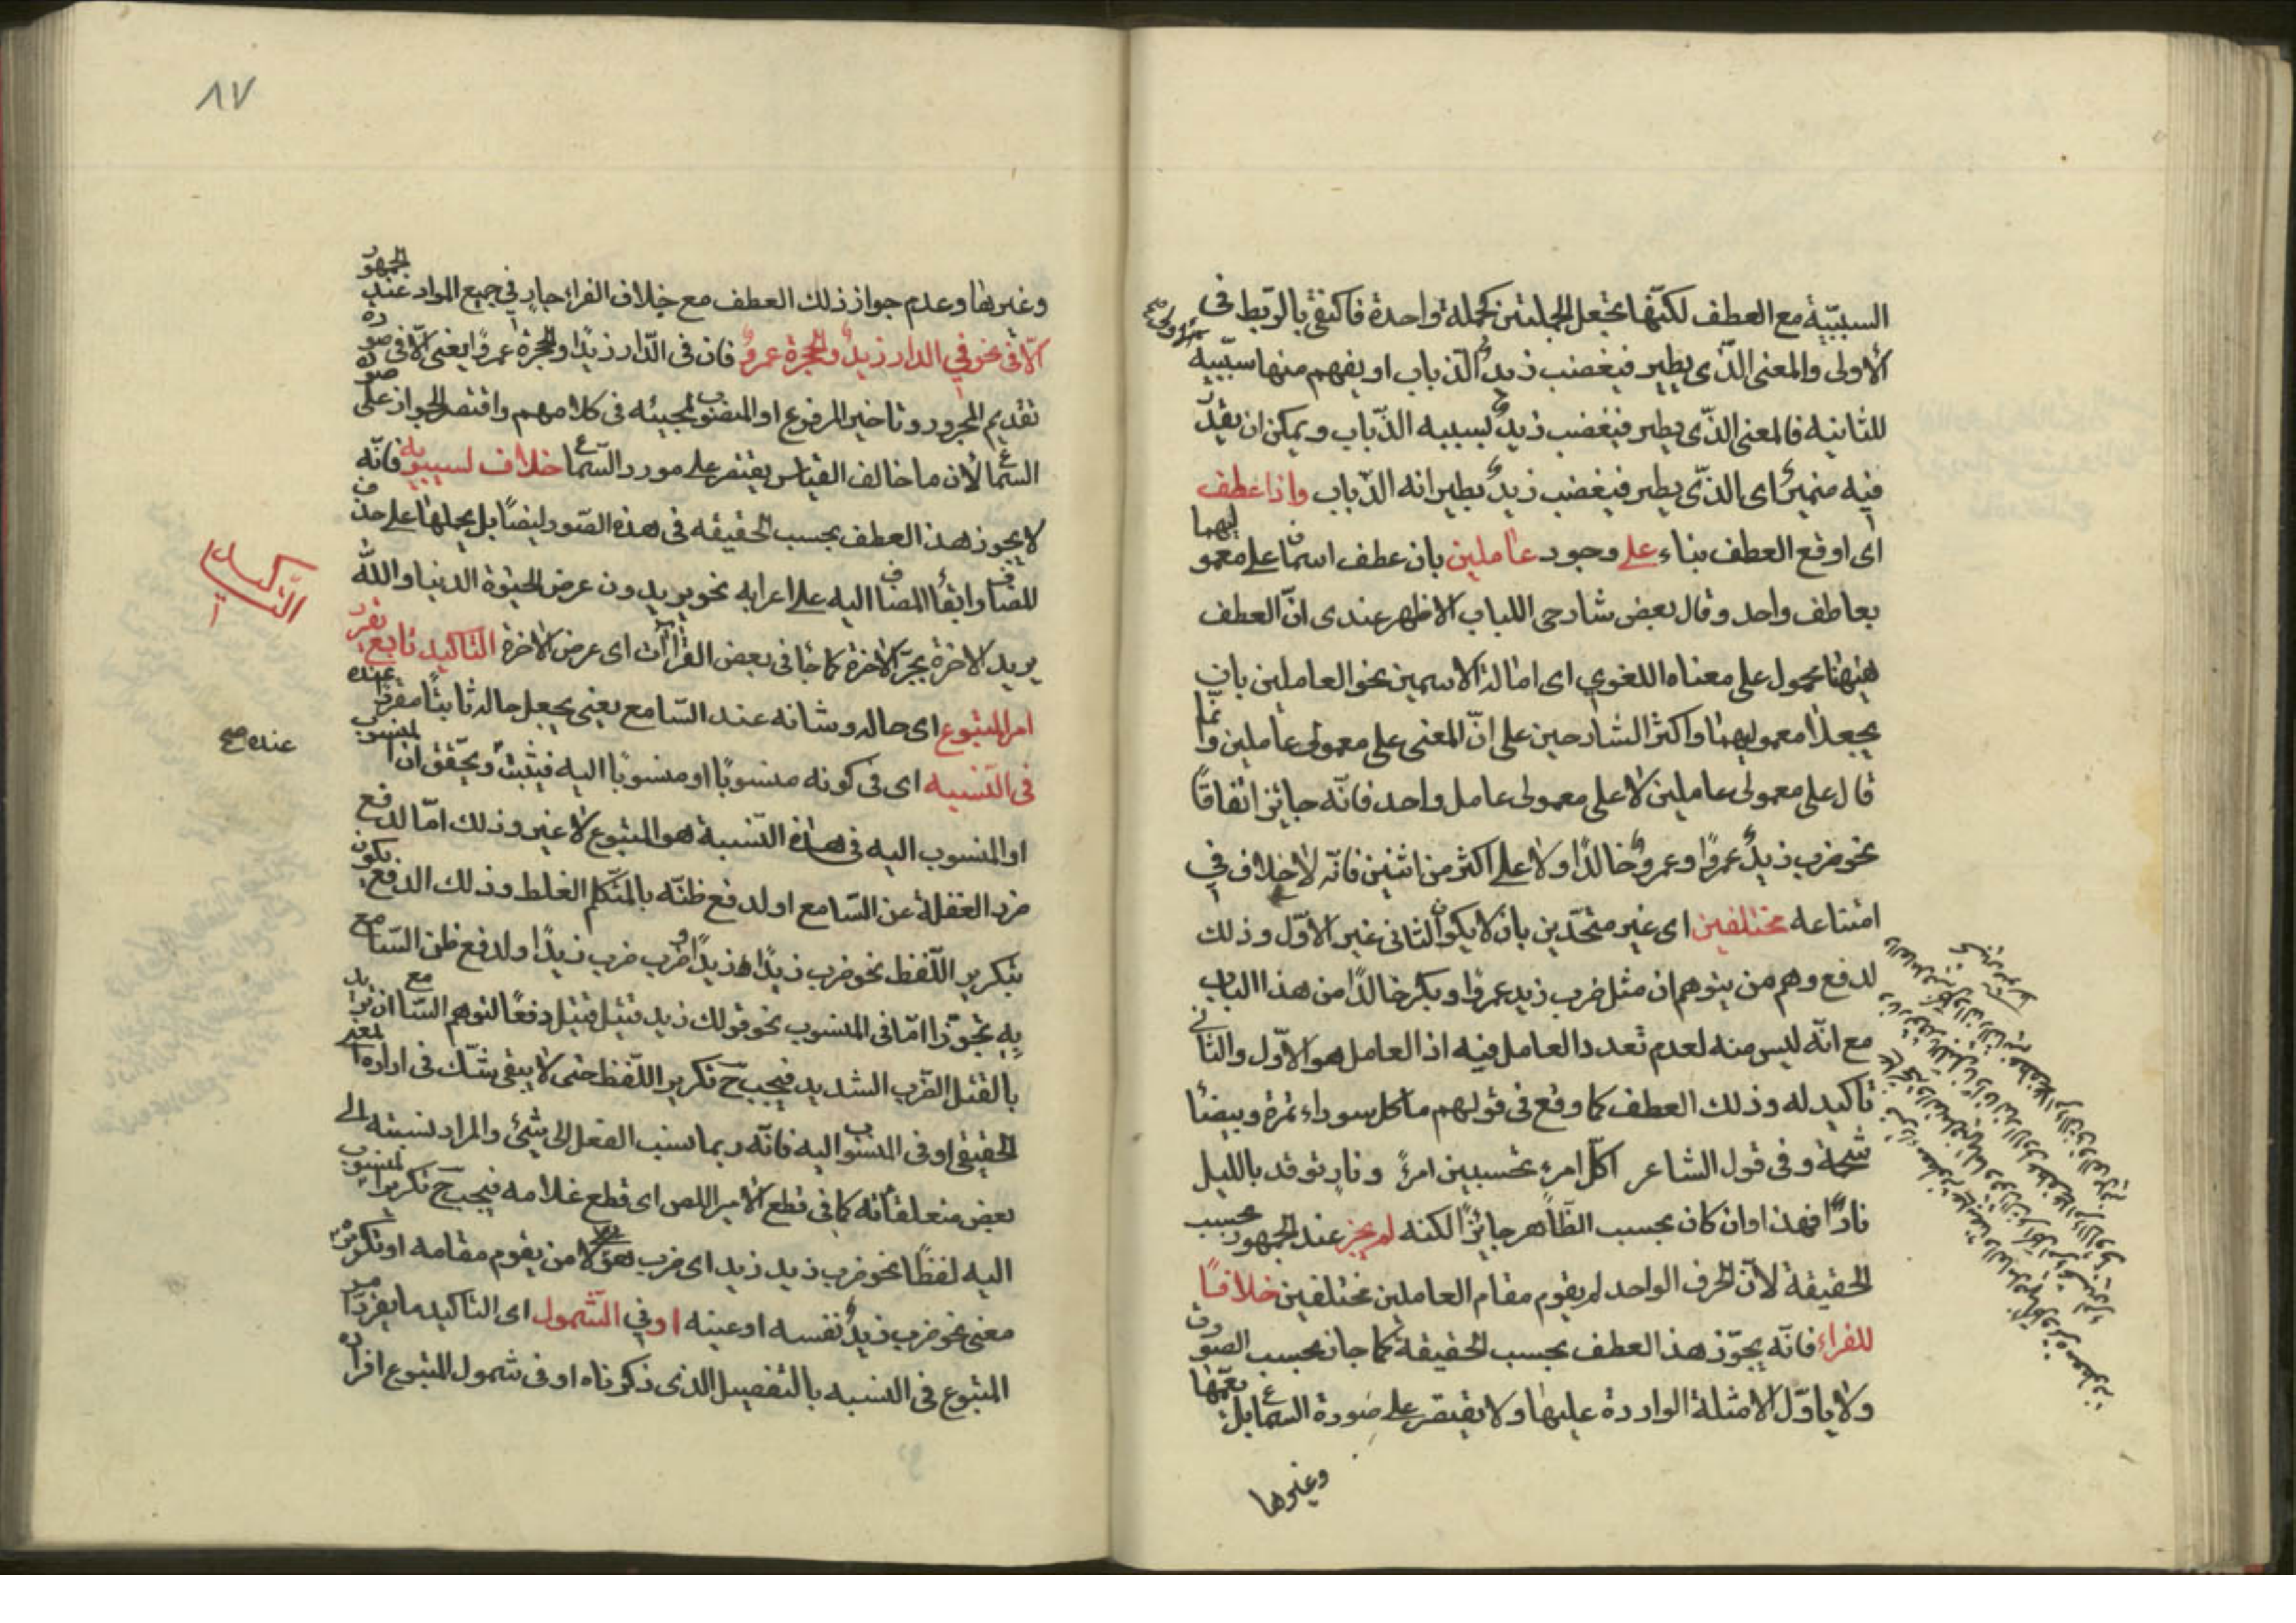 السببيّة مع العطف لكنّها تجعل الجملتين كجملة واحدة فاكتفى بالربط فى
الأولى والمعنى الذّى يطير فيغضب زيدٌ الذباب او يفهم منها سببيّة الاولى صح
للثانية فالمعنى الذّى يطير فيغضب زيدٌ بسببه الذّباب ويمكن ان يقدّر
فيه ضميرٌ اى الذّى يطير فيغضب زيدٌ بطيرانه الذّباب واذا عطف
اى اوقع العطف بناء على وجود عاملين بان عطف اسمان على معموليهما
بعاطف واحد وقال بعض شارحى اللباب الاظهر عندى انّ العطف
ههنا محمول على معناه اللغوي اى امالة الاسمين نحو العاملين بان
يجعلا معموليهما واكثر الشارحين على انّ المعنى على معمولى عاملين وانما
قال على معمولى عاملين لا على معمولى عامل واحد فانّه جايز اتفاقًا
نحو ضرب زيدٌ عمروًا وعمروٌ خالدًا ولا على اكثر من اثنين فانّه لا خلاف في
امتناعه مختلفين اى غير متحّدين بان لا يكون الثانى غير الاوّل وذلك
لدفع وهم من يتوهم ان مثل ضرب زيد عمروًا وبكر خالدًا من هذا الباب
مع انّه ليس منه لعدم تعدد العامل فيه اذ العامل هو الاوّل والثانى
تأكيد له وذلك العطف كما وقع فى قولهم ما كل سوداء تمرة وبيضأ
شحمة وفى قول الشاعر اكلّ امرءٍ تحسبين امرءً ونارٍ توقد بالليل
نارًا فهذا وان كان بحسب الظّاهر جائزًا لكنه لم يجز عند الجمهور بحسب
الحقيقة لانّ الحرف الواحد لم يقوم مقام العاملين مختلفين خلافًا
للفراء فانّه يجوّز هذا العطف بحسب الحقيقة كما جاز بحسب الصورة
ولا يأوّل الامثلة الواردة عليها ولا يقتصر على صورة السماع بل يعمّها
وغيرها
٨٧
وغيرها وعدم جواز ذلك العطف مع خلاف الفراء جارٍ في جميع المواد عند الجمهور
الّا فى نحو في الدار زيدٌ والحجرة عمروٌ فان فى الدّار زيدًا والحجرة عمروًا يعنى الّا فى صورة
تقديم المجرور وتاخير المرفوع او المنصوب لمجيئه فى كلامهم واقتصر الجواز على صورة
السماع لان ما خالف القياس يقتصر على مورد السّماع خلاف لسيبويه فانّه
لا يجوز هذا العطف بحسب الحقيقة فى هذه الصّور ايضًا بل يحملها على حذف
المضاف وابقأ المضاف اليه على اعرابه نحو يريدون عرض الحيوة الدنيا والله
يريد الاخرة بجرّ الاخرة كما جأ فى بعض القراآت اى عرض الاخرة التاكيد تابع يقرر
التاكيد
امر المتبوع اى حاله وشانه عند السّامع يعنى يجعل حاله ثابتًا مقررًا عنده
عنده صح
فى النّسبة اى فى كونه منسوبًا او منسوبًا اليه فيثبت ويحّقق انّ المنسوب
او المنسوب اليه فى هذه النّسبة هو المتبوع لا غير وذلك امّا لدفع
ضرر الغفلة عن السّامع او لدفع ظنّه بالمتكلّم الغلط وذلك الدفع يكون
بتكرير اللّفظ نحو ضرب زيدًا زيدًا وضرب ضرب زيدًا ولدفع ظن السّامع
به تجوّزا امّا فى المنسوب نحو قولك زيد قتيل قتيل دفعًا لتوهم السّامع ان يريد
بالقتل الضّرب الشديد فيجب حَ تكرير اللّفظ حتى لا يبقى شكّ فى ارادة المعنى
الحقيقى او فى المنسوب اليه فانّه ربما نسب الفعل الى شئ والمراد نسبته الى
بعض متعلقاته كما فى قطع الامير اللص اى قطع غلامه فيجب حَ تكرير المنسوب
اليه لفظًا نحو ضرب زيد زيد اى ضرب هو لا من يقوم مقامه او تكريره
معنى نحو ضرب زيدٌ نفسه او عينه او في الشّمول اى التاكيد ما يقرر امر
المتبوع فى النسبه بالتفصيل الذى ذكرناه او فى شمول المتبوع افراده